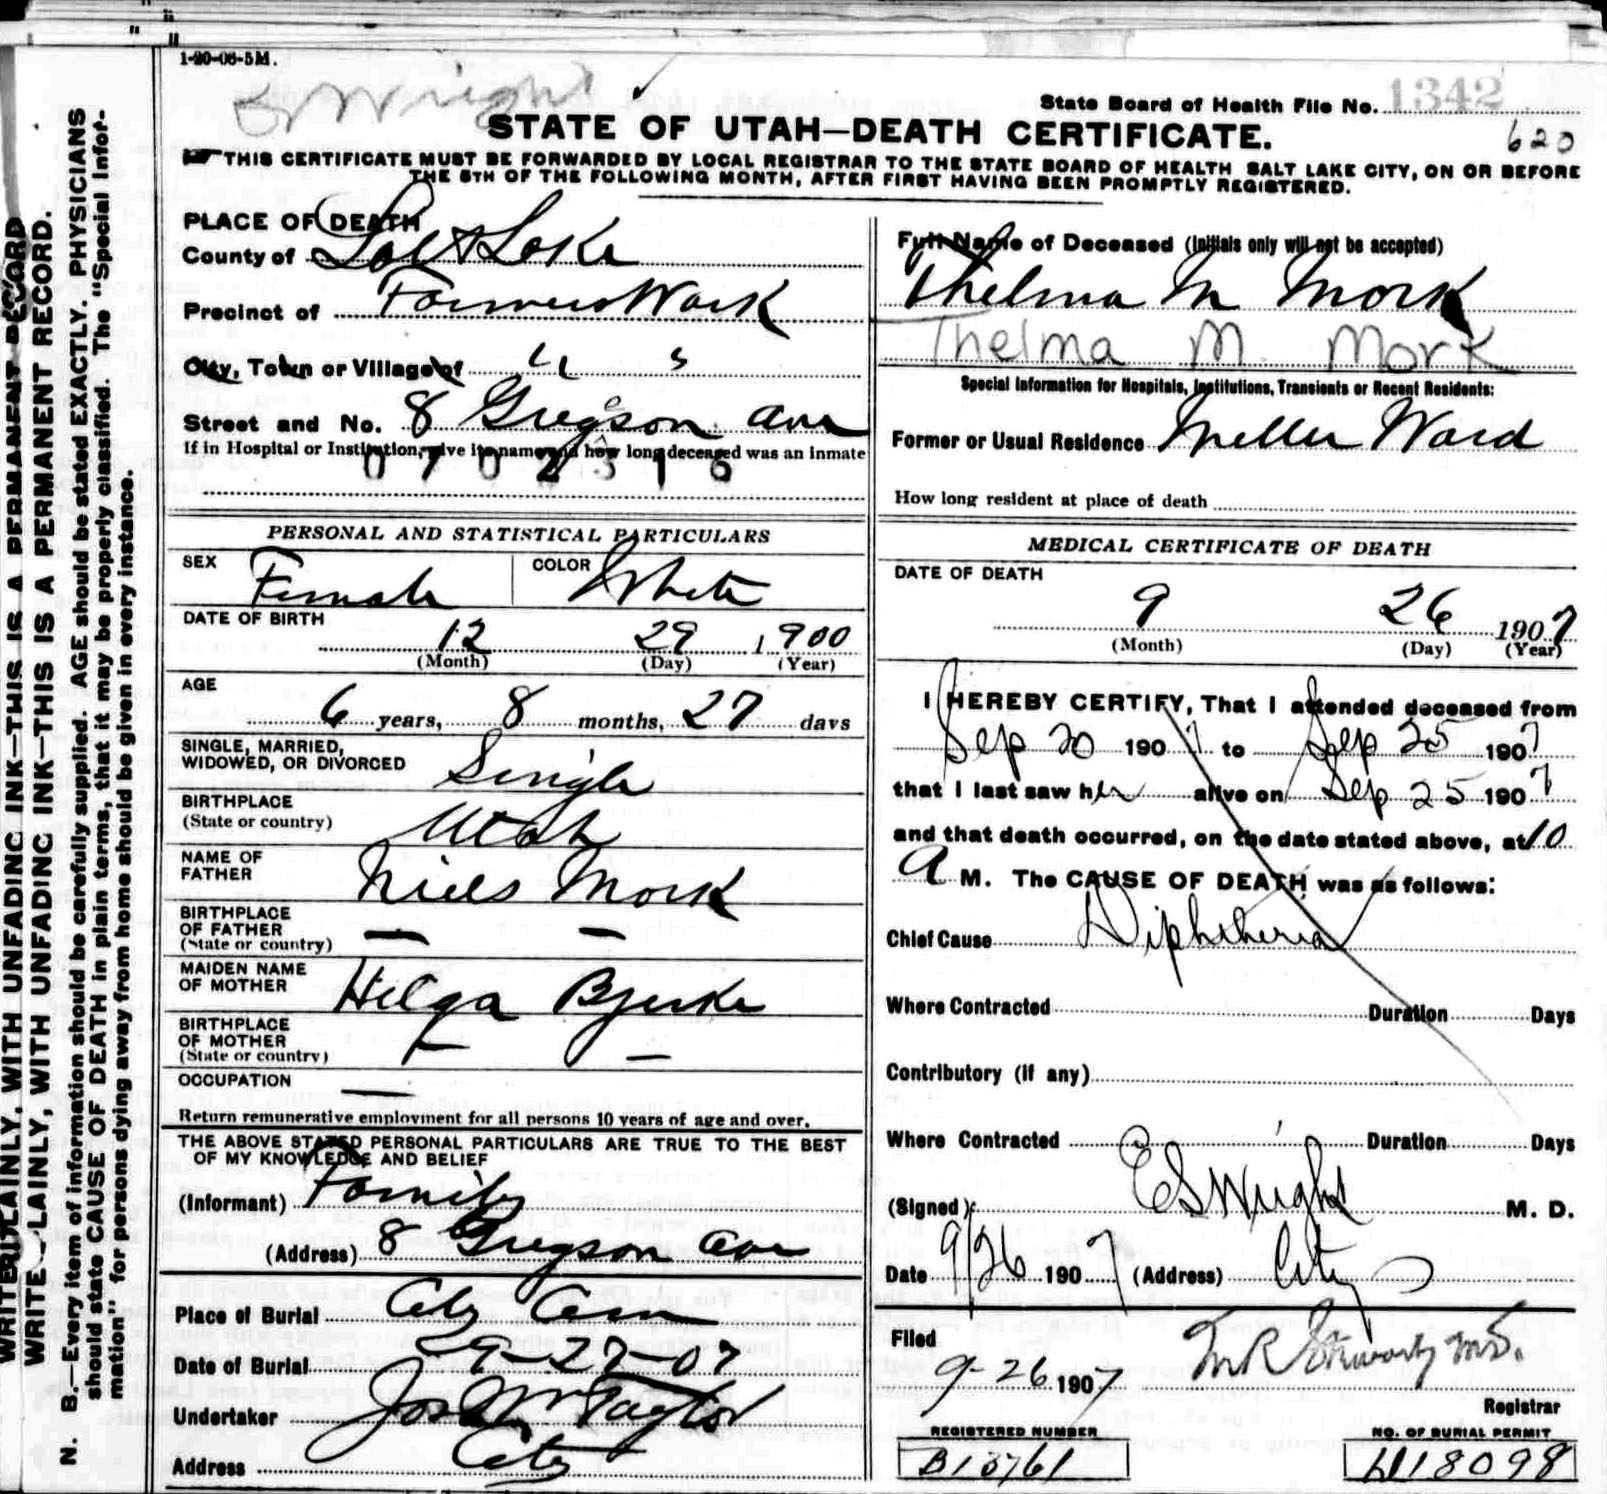 1-20-06-5M.
E S Wright
State Board of Health File No. 1342
STATE OF UTAH—DEATH CERTIFICATE.
620
THIS CERTIFICATE MUST BE FORWARDED BY LOCAL REGISTRAR TO THE STATE BOARD OF HEALTH SALT LAKE CITY, ON OR BEFORE
THE 5TH OF THE FOLLOWING MONTH, AFTER FIRST HAVING BEEN PROMPTLY REGISTERED.
WRITE PLAINLY, WITH UNFADING INK—THIS IS A PERMANENT RECORD.
N. B.—Every item of information should be carefully supplied. AGE should be stated EXACTLY. PHYSICIANS
should state CAUSE OF DEATH in plain terms, that it may be properly classified. The "Special Infor-
mation" for persons dying away from home should be given in every instance.
PLACE OF DEATH
County of Salt Lake
Precinct of Farmers Ward
City, Town or Village of " "
Street and No. 8 Gregson Ave
If in Hospital or Institution, give its name and how long deceased was an inmate
0702316
PERSONAL AND STATISTICAL PARTICULARS
SEX Female COLOR White
DATE OF BIRTH
12 29 1900
(Month) (Day) (Year)
AGE
6 years, 8 months, 27 days
SINGLE, MARRIED,
WIDOWED, OR DIVORCED Single
BIRTHPLACE
(State or country) Utah
NAME OF
FATHER Niels Mork
BIRTHPLACE
OF FATHER — —
(State or country)
MAIDEN NAME
OF MOTHER Helga Bjerke
BIRTHPLACE
OF MOTHER — —
(State or country)
OCCUPATION —
Return remunerative employment for all persons 10 years of age and over.
THE ABOVE STATED PERSONAL PARTICULARS ARE TRUE TO THE BEST
OF MY KNOWLEDGE AND BELIEF
(Informant) Family
(Address) 8 Gregson Ave
Place of Burial City Cem
Date of Burial 9-27-07
Undertaker Jos Wm Taylor
Address City
Full Name of Deceased (Initials only will not be accepted)
Thelma M Mork
Thelma M. Mork
Special Information for Hospitals, Institutions, Transients or Recent Residents:
Former or Usual Residence Miller Ward
How long resident at place of death
MEDICAL CERTIFICATE OF DEATH
DATE OF DEATH
9 26 1907
(Month) (Day) (Year)
I HEREBY CERTIFY, That I attended deceased from
Sep 20 1907 to Sep 25 1907
that I last saw her alive on Sep 25 1907
and that death occurred, on the date stated above, at 10
A M. The CAUSE OF DEATH was as follows:
Chief Cause Diphtheria
Where Contracted Duration Days
Contributory (if any)
Where Contracted Duration Days
(Signed) E S Wright M. D.
Date 9/26 1907 (Address) City
Filed
9-26 1907
Registrar
REGISTERED NUMBER
B13761
NO. OF BURIAL PERMIT
18098